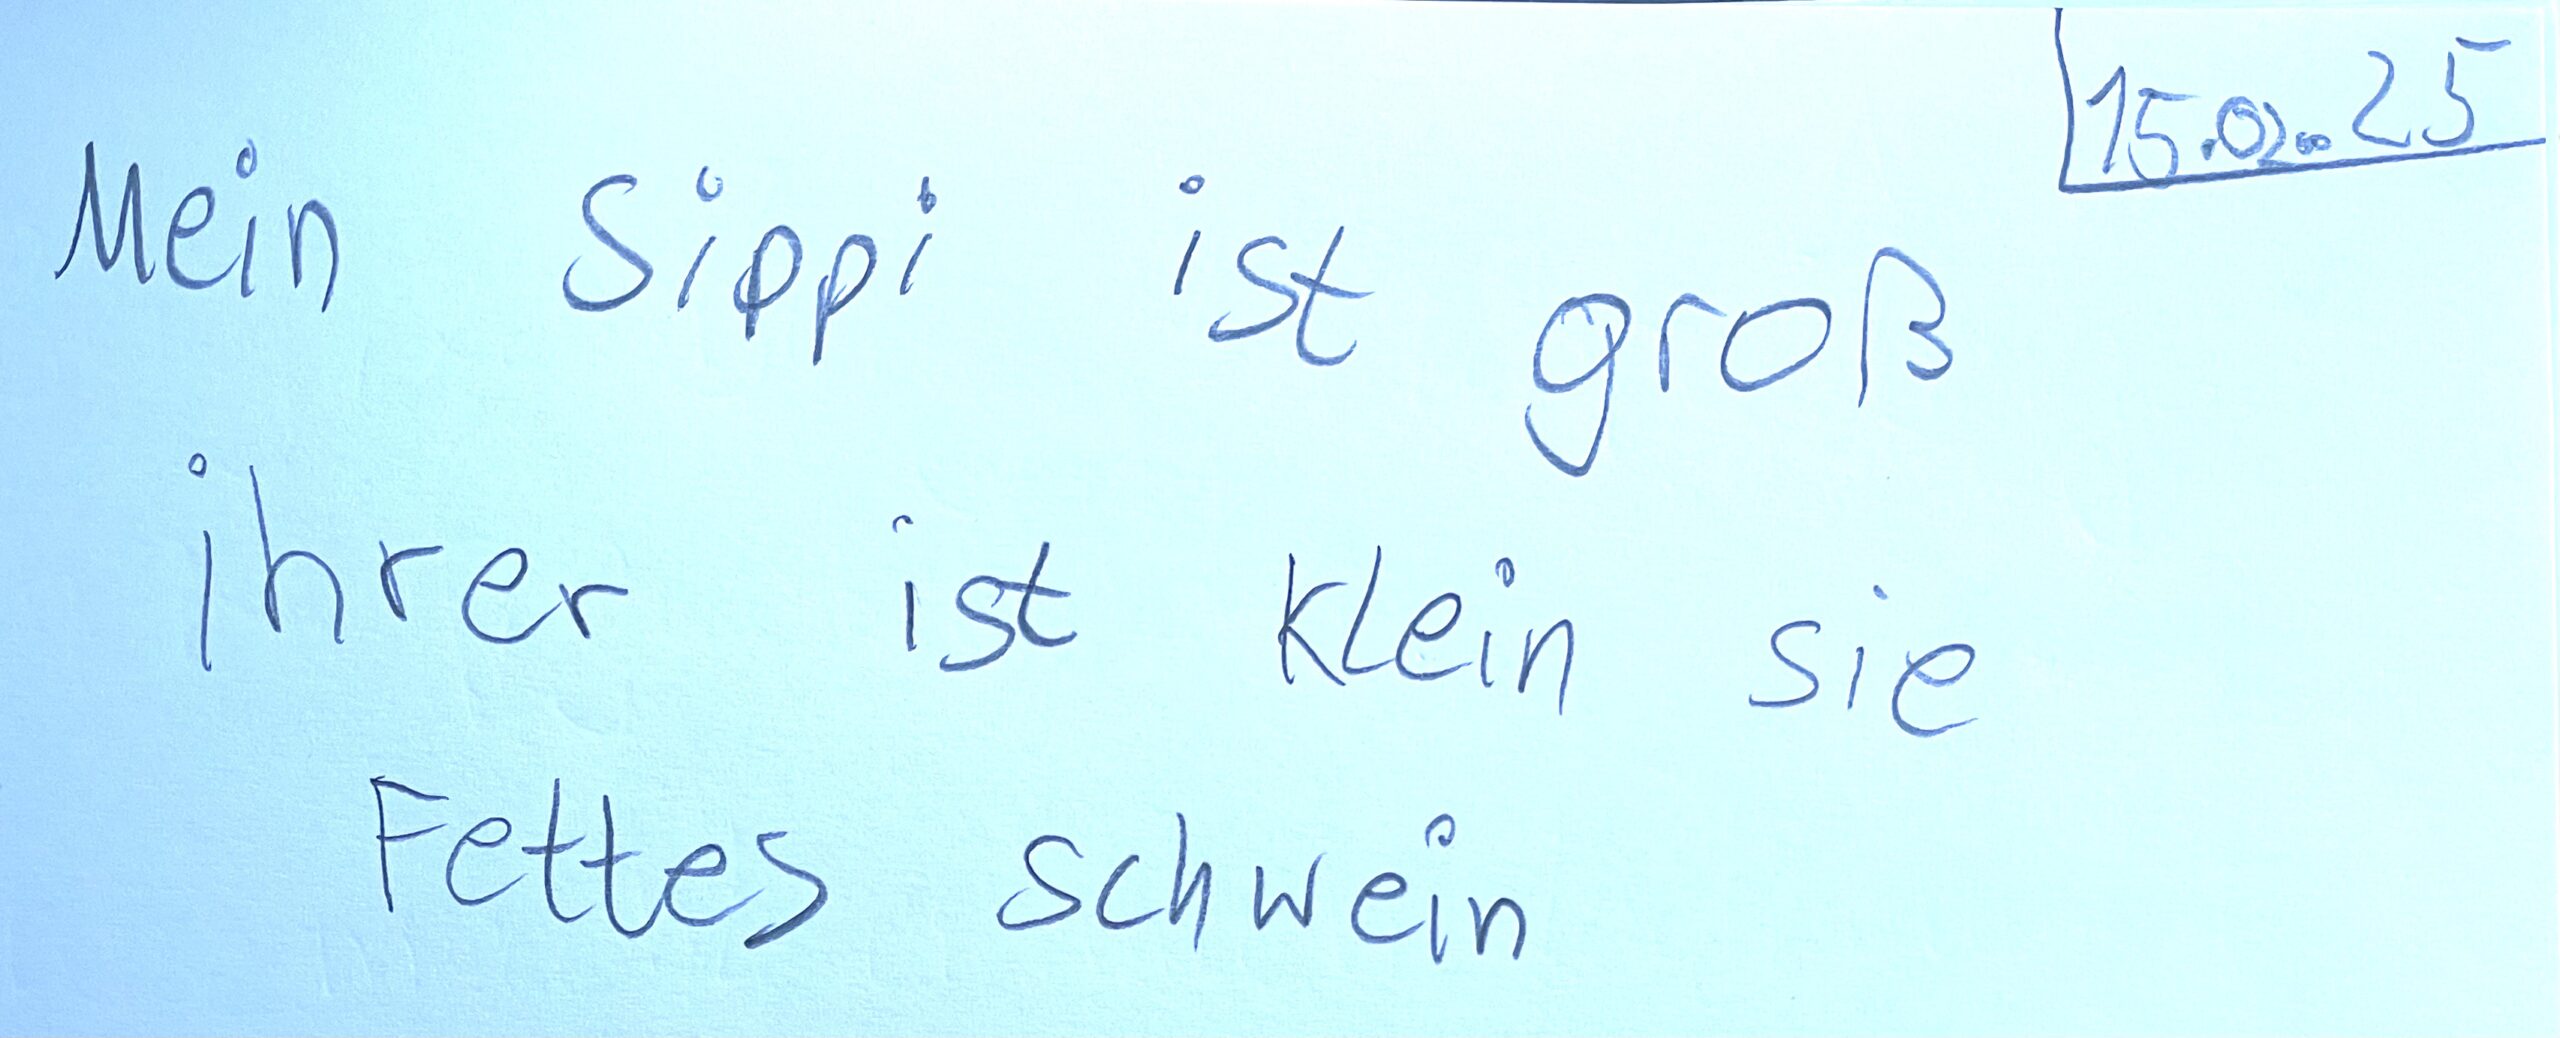 15.02.25
Mein Sippi ist groß
ihrer ist klein sie
Fettes schwein